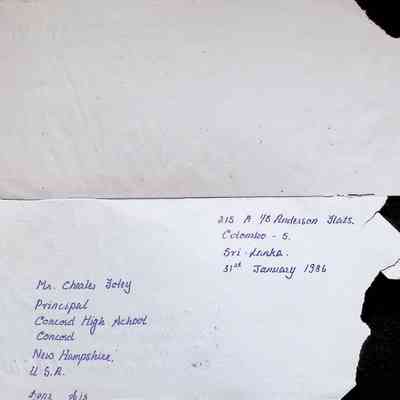 215 A 1/8 Anderson Flats.
Colombo - 5.
Sri-Lanka.
31st January 1986
Mr. Chales Foley
Principal
Concord High School
Concord
New Hampshire,
U.S.A.
Dear Sir